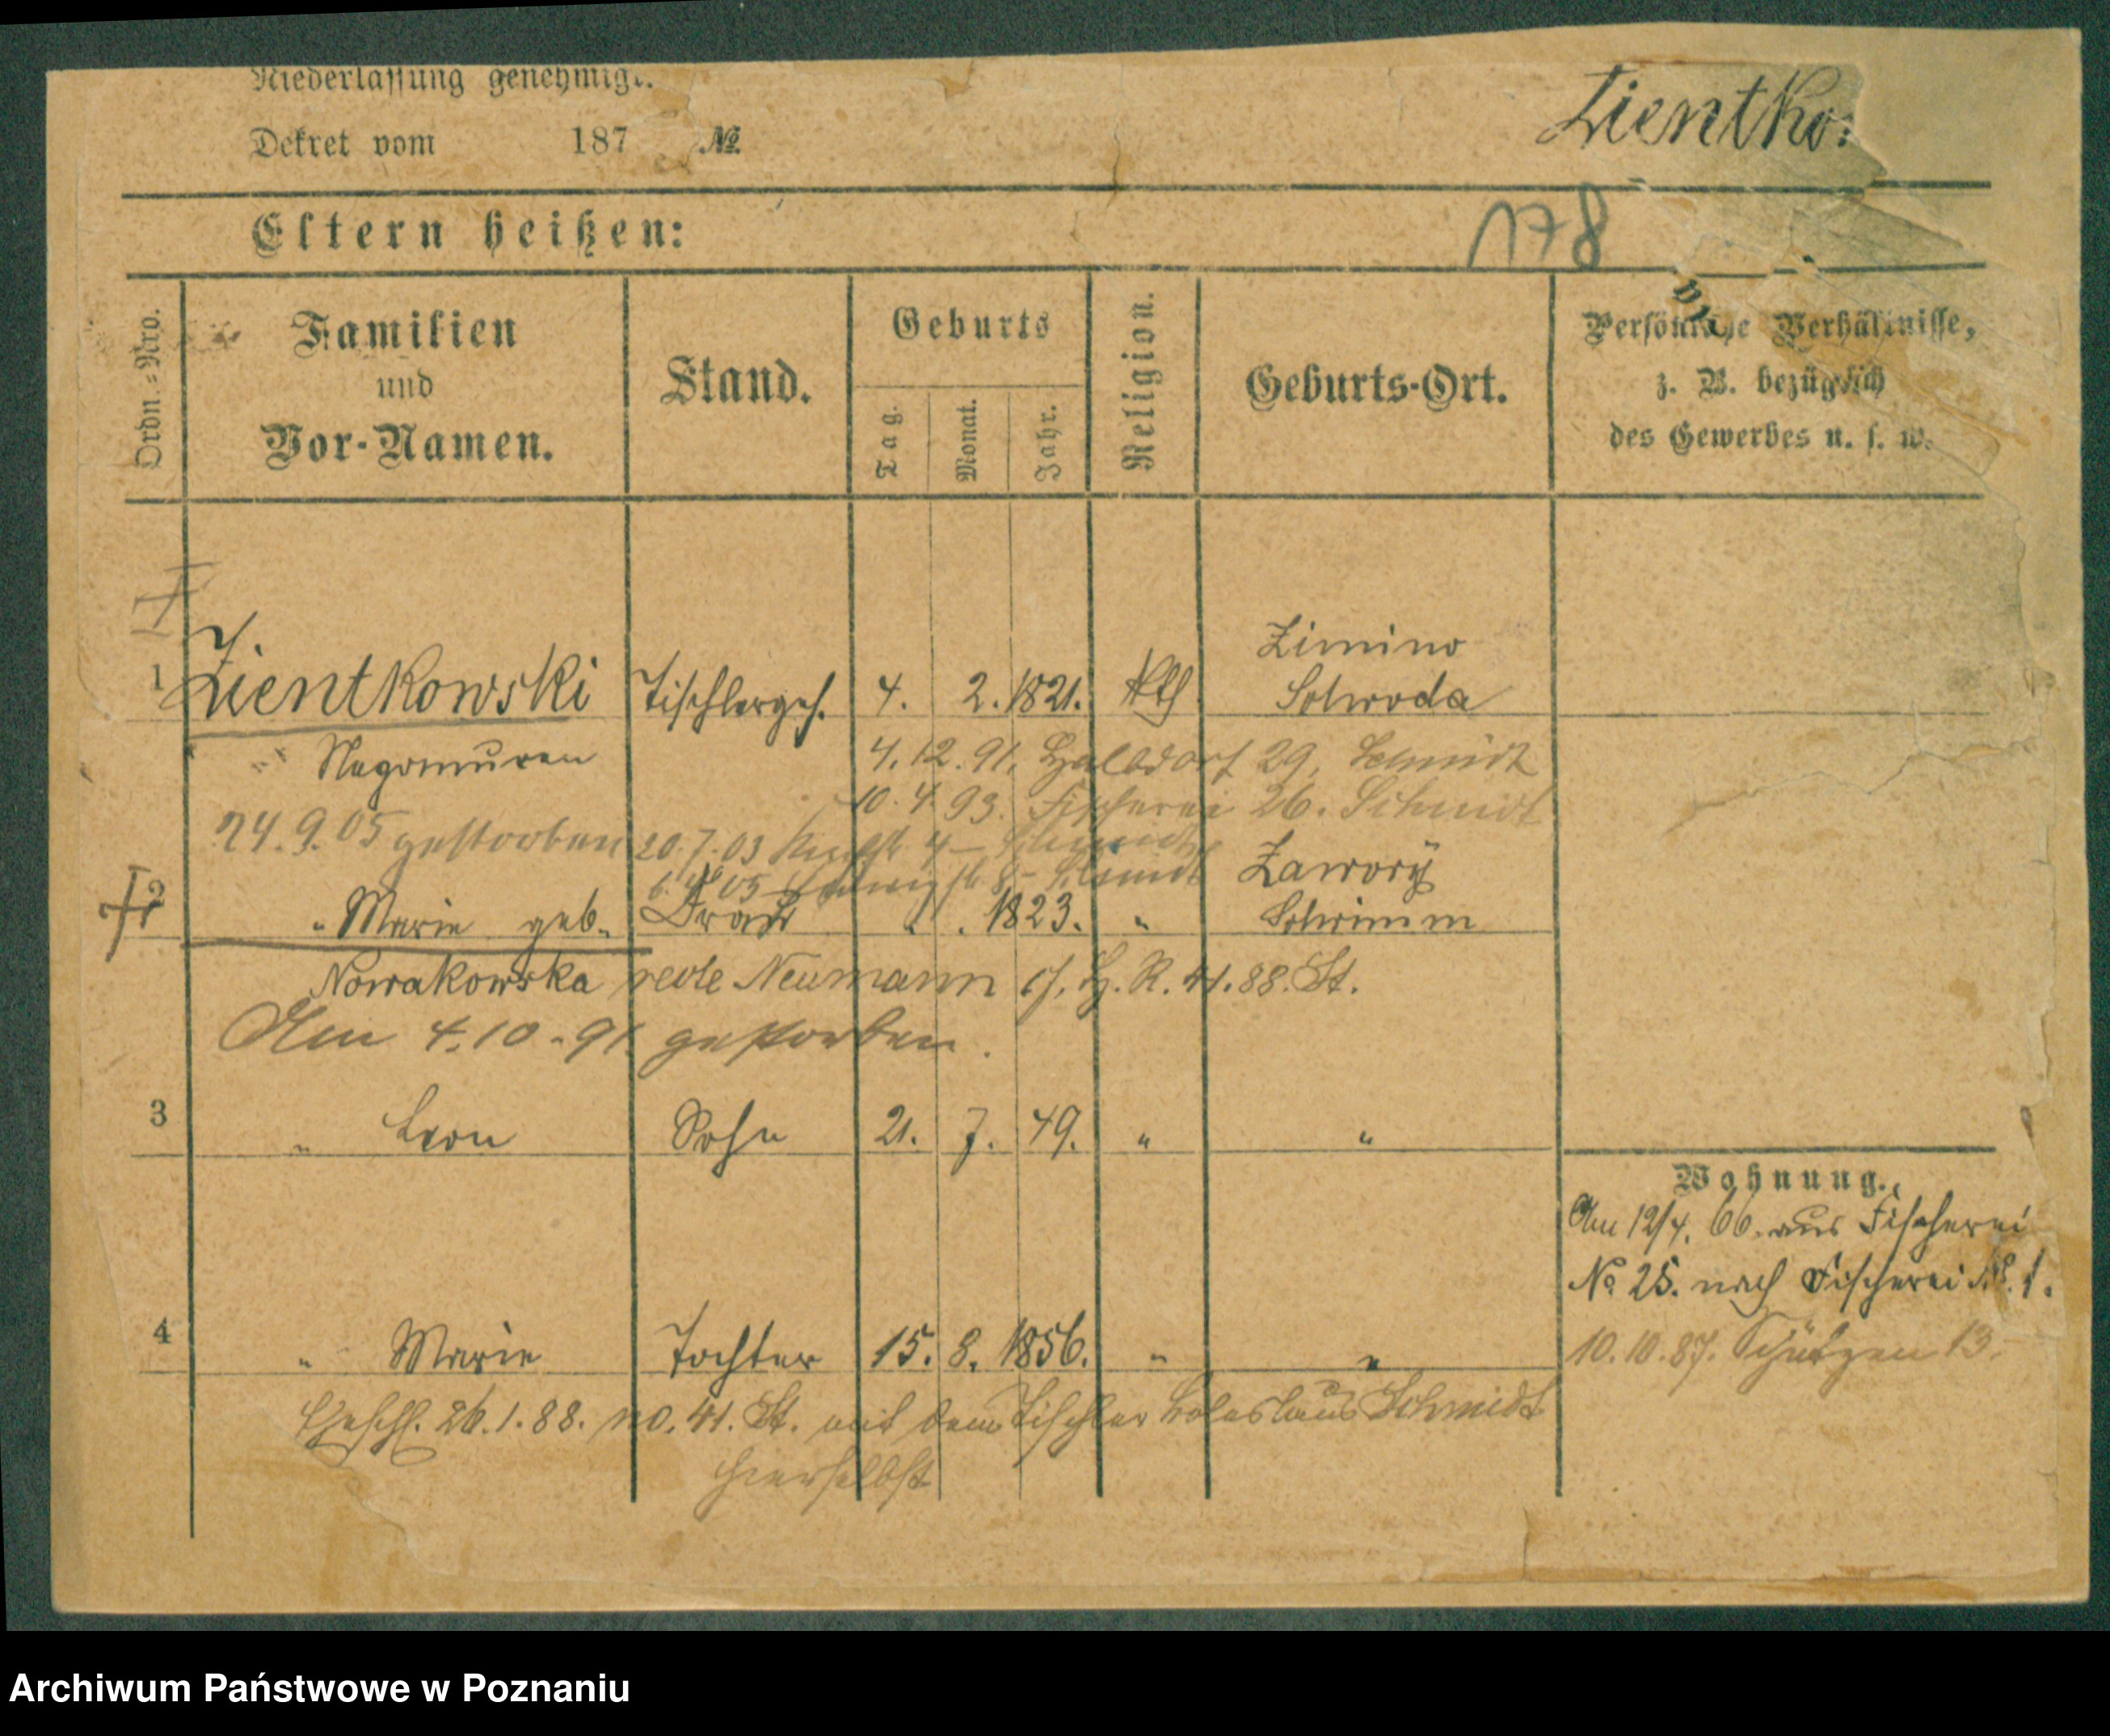 Niederlassung genehmigt.
Dekret vom 187 №
Zientko:
Eltern heißen:
178
Ordn.-Nro.
Familien
und
Vor-Namen.
Stand.
Geburts
Tag.
Monat.
Jahr.
Religion.
Geburts-Ort.
Persönliche Verhältnisse,
z. B. bezüglich
des Gewerbes u. s. w.
Zimino
1 Zientkowski Tischlerges. 4. 2. 1821. Kth Schroda
4.12.91. Halbdorf 29, Schmidt
10.4.93. Fischerei 26. Schmidt
24.9.05 gestorben 20.7.03 4 – Schmidt
05 8 – Schmidt Zawory
2 " Marie geb. Frau 1823. " Schrimm
Nowakowska recte Neumann cf. H. R. 41.88. St.
Am 4.10.91. gestorben.
3 " Leon Sohn 21. 7. 49. " "
Wohnung.
Am 12/4. 66. aus Fischerei
No 25. nach Fischerei No. 1.
4 " Marie Tochter 15. 8. 1856. " "
10.10.87. Schützen 13.
Eheschl. 26.1.88. no. 41. St. mit dem Tischler Boleslaus Schmidt
hierselbst
Archiwum Państwowe w Poznaniu